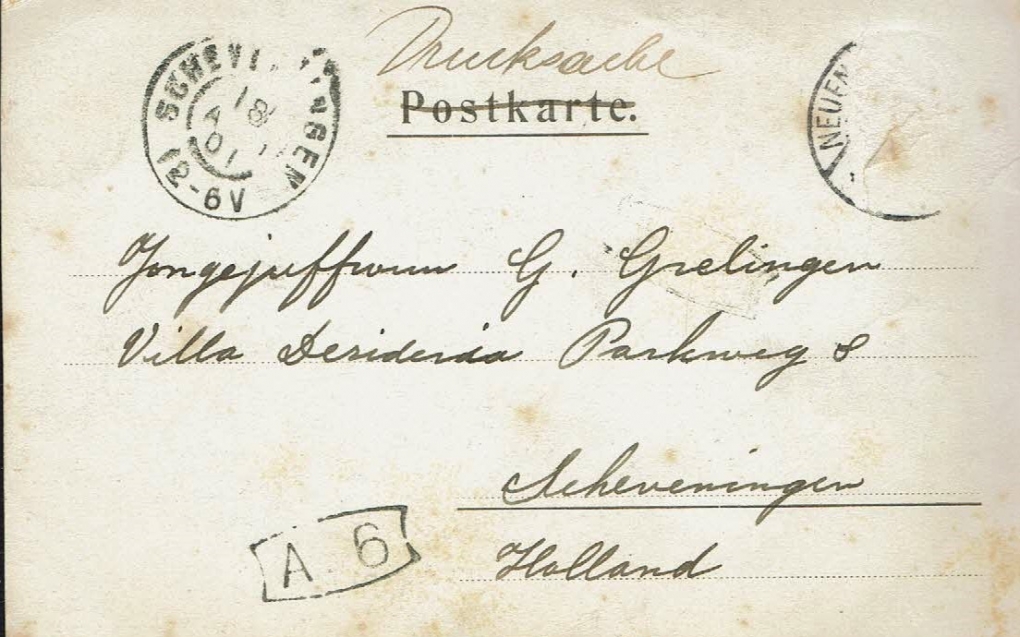 Drucksache
Postkarte.
SCHEVENINGEN
18
01
12-6V
NEUEN
Jongejuffrouw G. Grelingen
Villa Desideria Parkweg 8
Scheveningen
Holland
A 6